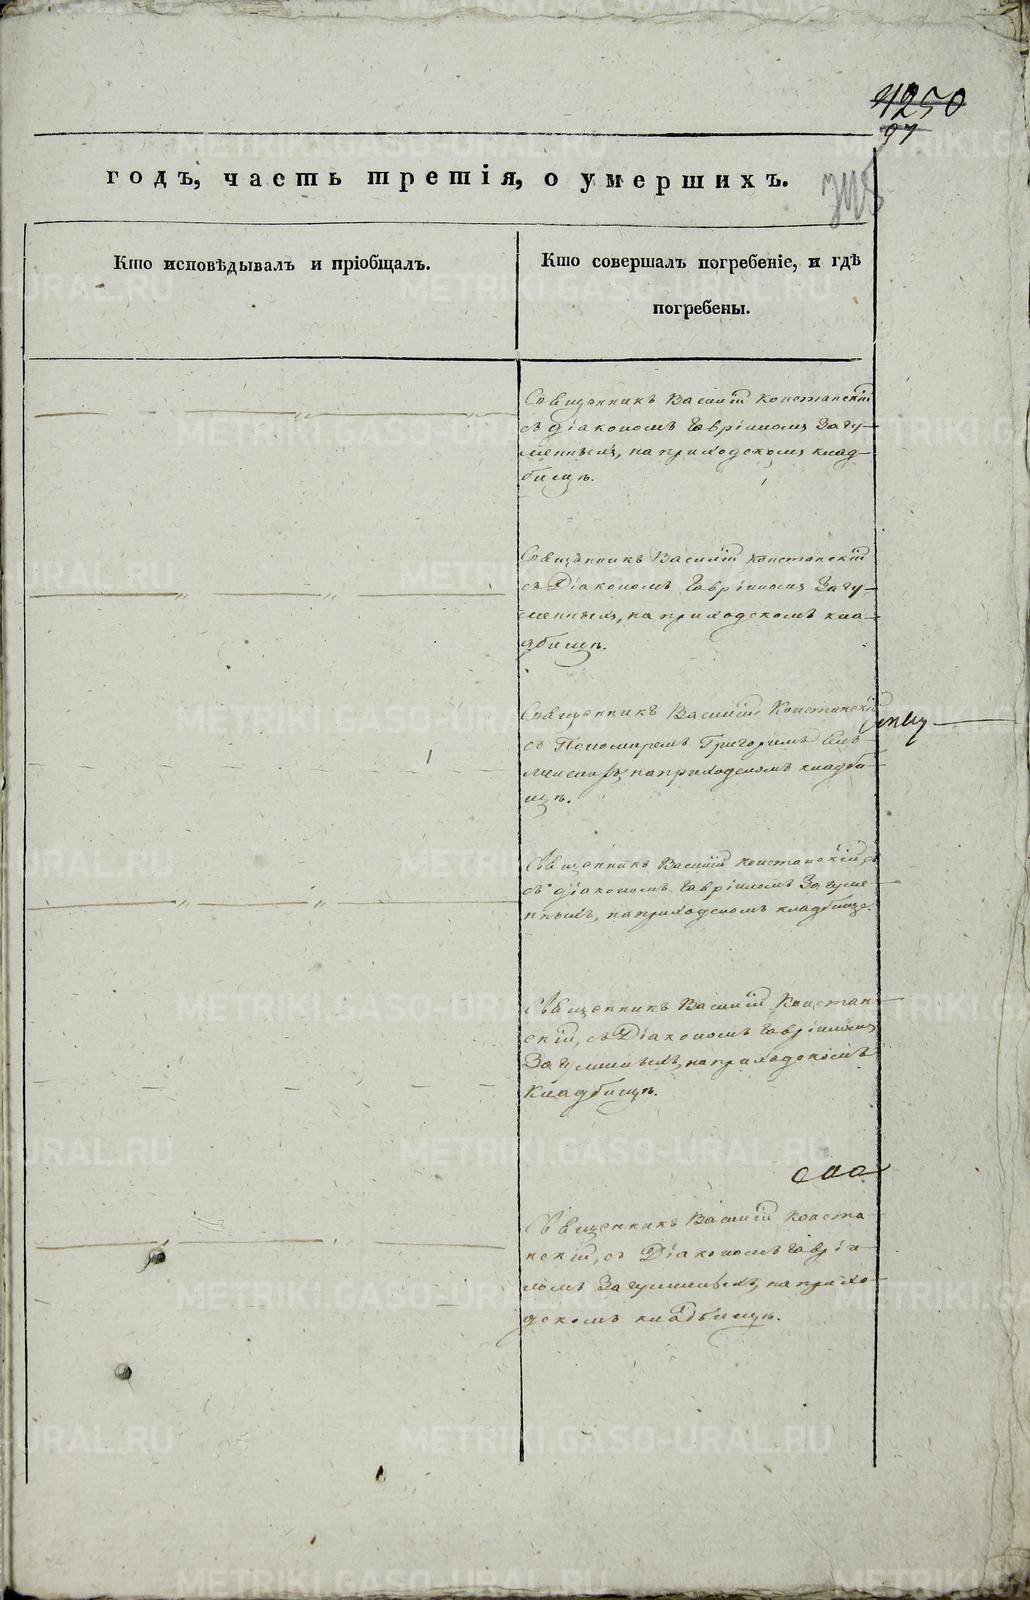 4250
97
годъ, часть третія, о умершихъ.
Кто исповѣдывалъ и пріобщалъ.
Кто совершалъ погребеніе, и гдѣ
погребены.
Священникъ Василій Констанскій
съ діакономъ Гавріиломъ Загу-
менныхъ, на приходскомъ клад-
бищѣ.
Священникъ Василій Констанскій
съ Діакономъ Гавріиломъ Загу-
менныхъ, на приходскомъ кла-
дбищѣ.
Священникъ Василій Констанскій
съ Пономаремъ Григоріемъ
на приходскомъ кладби-
щѣ.
Священникъ Василій Констанскій съ
съ діакономъ Гавріиломъ Загуме-
нныхъ, на приходскомъ кладбище.
Священникъ Василій Констан-
скій, съ Діакономъ Гавріиломъ
Загуменныхъ, на приходскомъ
кладбищѣ.
Священникъ Василій Конста-
нскій, съ Діакономъ Гаврі-
ломъ Загуменныхъ, на прихо-
дскомъ кладбищѣ.
METRIKI.GASO-URAL.RU